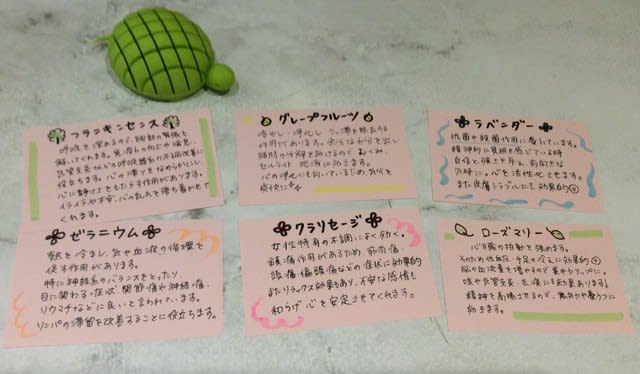 フランキンセンス
呼吸を深めるので、胸部の緊張を
解いてくれます。免疫力の向上や喘息、
気管支炎などの呼吸器系の不調改善に
役立ちます。心の滞りをなめらかにし
心に静けさをもたらす作用があります。
イライラや不安、心の乱れを落ち着かせて
くれます。
グレープフルーツ
冷やし・浄化し・うっ滞を除去する
作用があります。余分な水分を出し
脂肪の分解を助けるので、むくみ、
セルライト、肥満に効きます。
心の浄化にも向いているため、気分を
爽快に
ラベンダー
抗菌や殺菌作用に優れています。
精神的に負担を感じている時
自信と強さを与え、前向きな
気持に。心を活性化させます。
また皮膚トラブルにも効果的
ゼラニウム
熱を冷まし、気や血液の循環を
促す作用があります。
特に神経系のバランスをとったり、
目に関わる症状、関節痛や神経痛、
リウマチなどに良いと言われています。
リンパの滞留を改善することに役立ちます。
クラリセージ
女性特有の不調によく効く。
鎮痛作用があるため、筋肉痛、
頭痛、偏頭痛などの症状に効果的
またリラックス効果もあり、不安な感情も
和らげ心を安定させてくれます。
ローズマリー
心臓の拍動を強めます。
そのため低血圧、手足の冷えに効果的
脳の血流量を増やすので集中力アップに。
咳や気管支炎、去痰にも効果あります!
精神を高揚させるので、無気力や憂うつに
効きます。